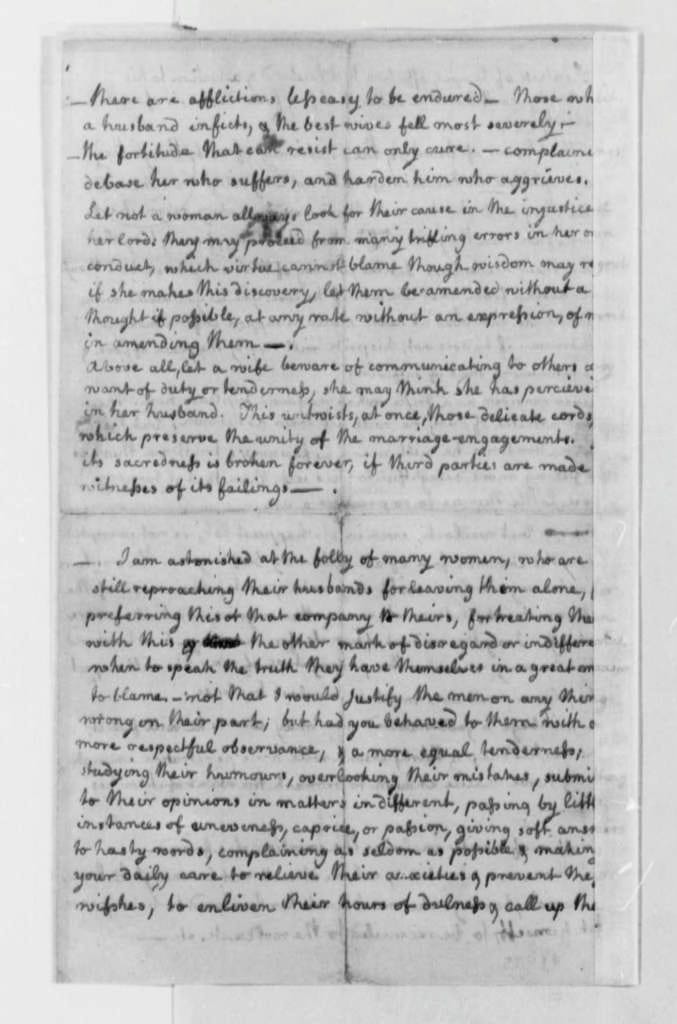 — There are afflictions less easy to be endured — Those wh
a husband inflicts, & the best wives fell most severely;—
— the fortitude that can resist can only cure. — complaine
debase her who suffers, and harden him who aggrieves.
Let not a woman allways look for their cause in the injustice
her lord: they may proceed from many trifling errors in her o
conduct, which virtue cannot blame though wisdom may re
if she makes this discovery, let them be amended without a
thought if possible, at any rate without an expression, of m
in amending them —.
Above all, let a wife beware of communicating to others a
want of duty or tenderness, she may think she has percieve
in her husband. This untwists, at once, those delicate cords,
which preserve the unity of the marriage-engagements.
its sacredness is broken forever, if third parties are made
witnesses of its failings — .
—. I am astonished at the folly of many women, who are
still reproaching their husbands for leaving them alone,
preferring this or that company to theirs, for treating the
with this & the other mark of disregard or indiffere
when to speak the truth they have themselves in a great
to blame. — not that I would justify the men on any thin
wrong on their part; but had you behaved to them with
more respectful observance, & a more equal tenderness;
studying their humours, overlooking their mistakes, submi
to their opinions in matters indifferent, passing by littl
instances of uneveness, caprice, or passion, giving soft ans
to hasty words, complaining as seldom as possible & making
your daily care to relieve their anxieties & prevent the
wishes, to enliven their hours of dulness & call up the